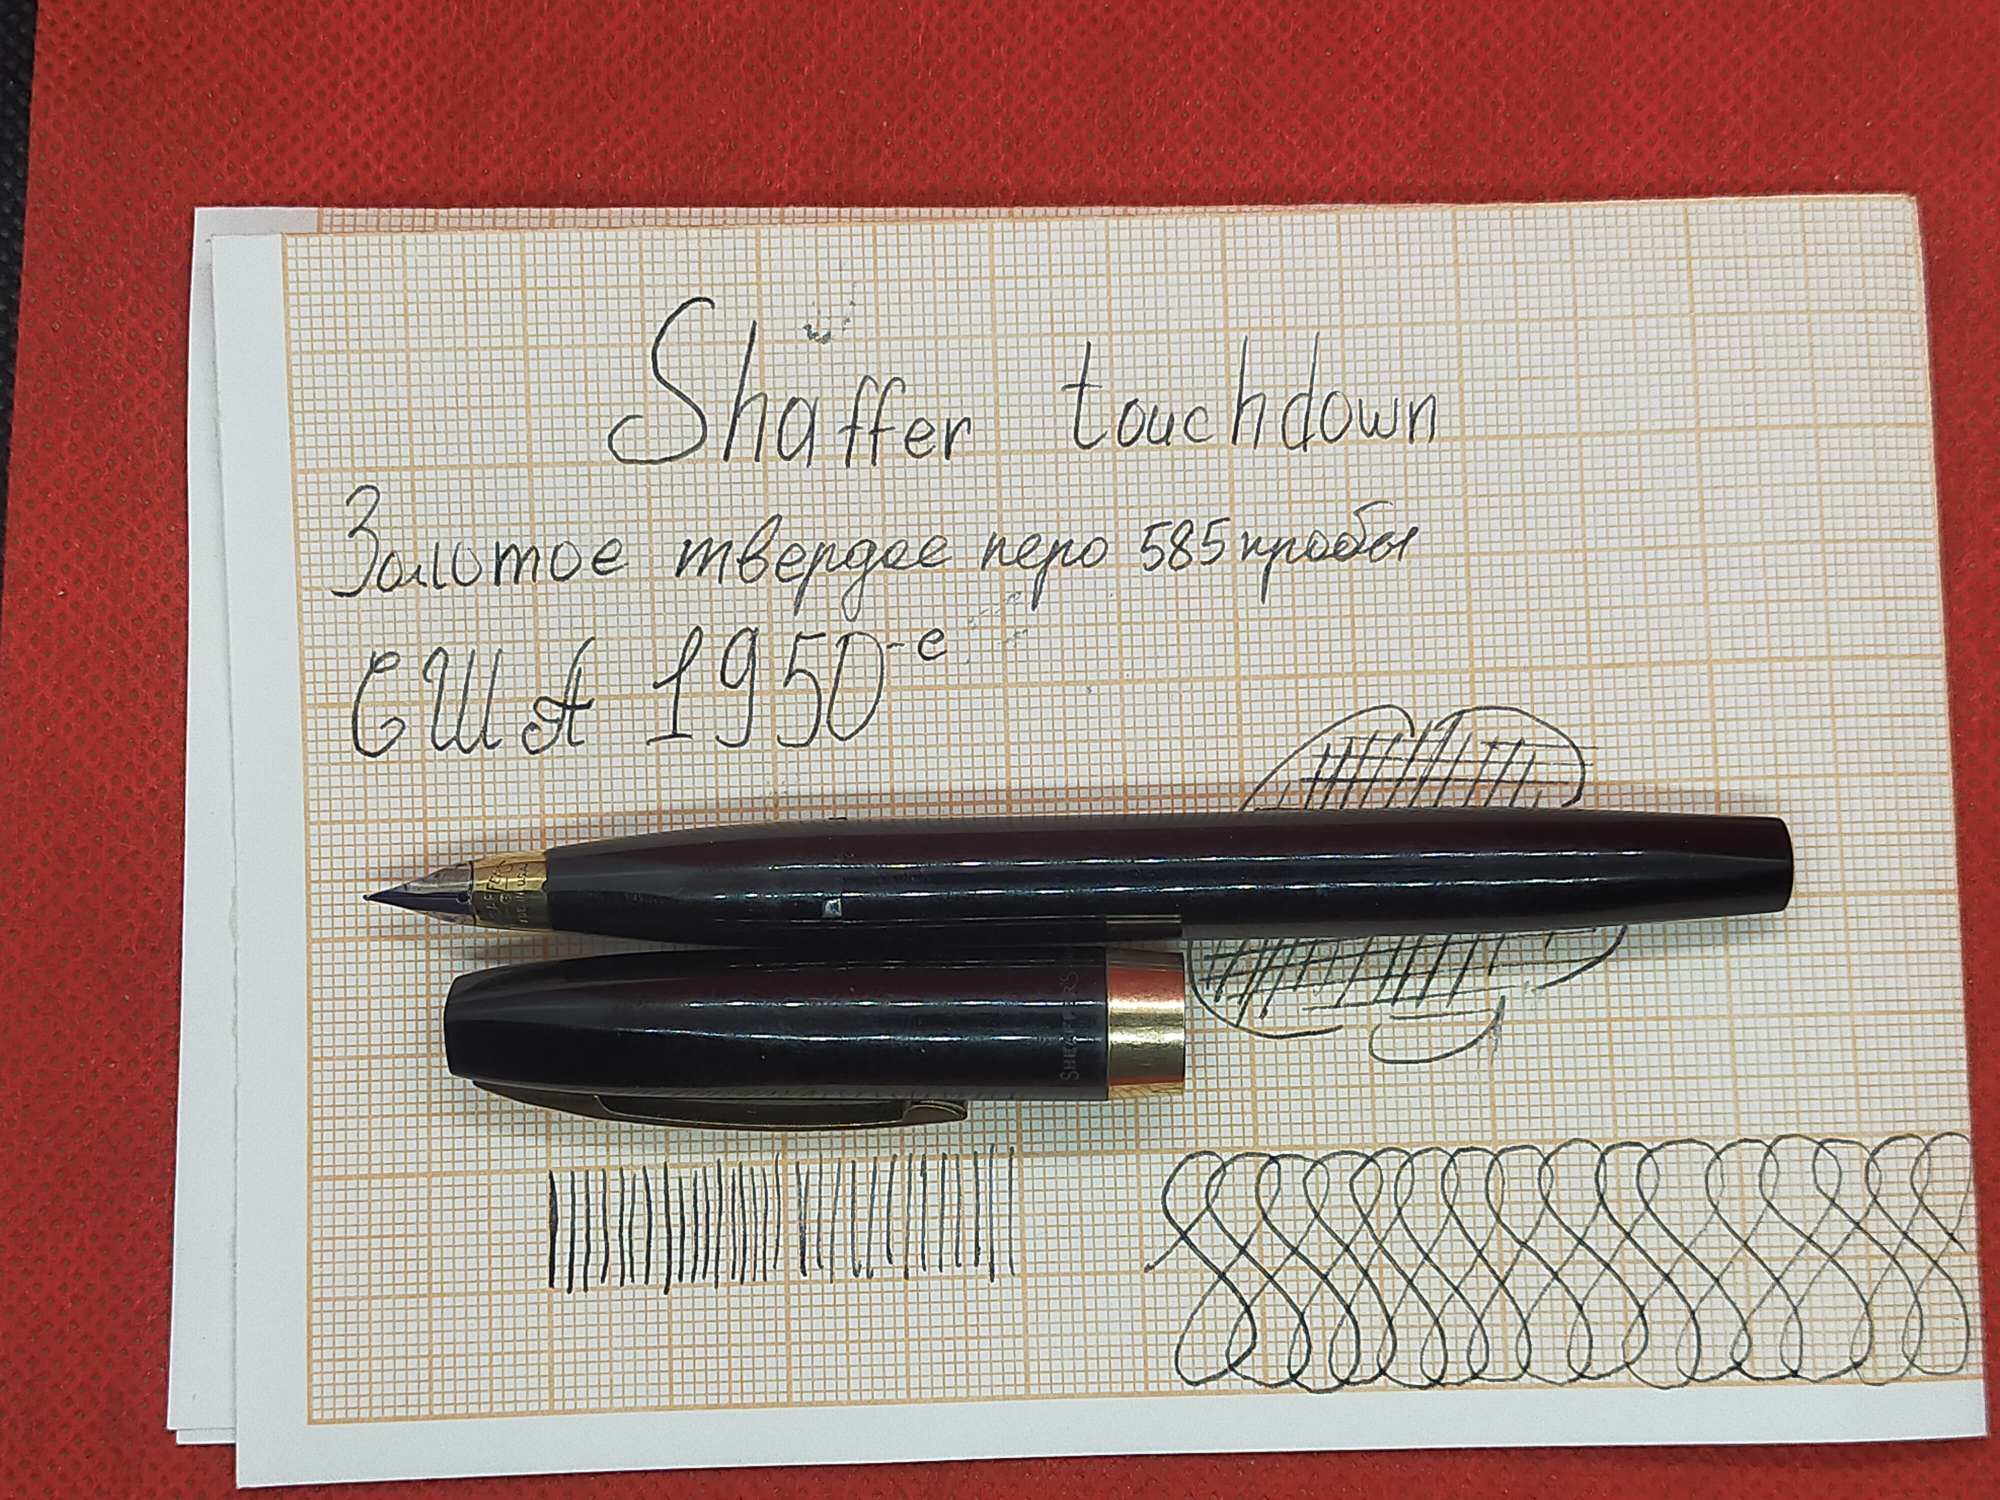 Shaffer touchdown
Золотое твердое перо 585 пробы
США 1950-е
SHEAFFER'S